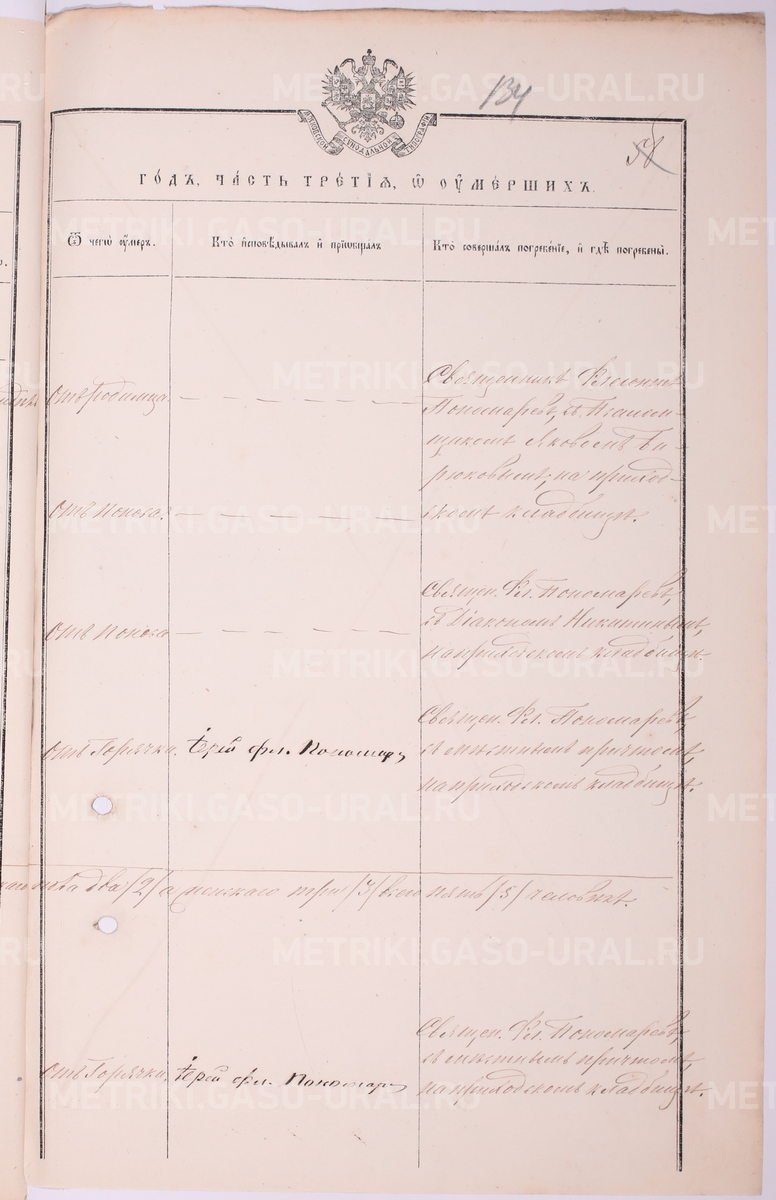 134
58
МОСКОВСКОЙ СѴНОДАЛЬНОЙ ТИПОГРАФІИ
ГОДЪ, ЧАСТЬ ТРЕТІЯ, Ѿ ОУМЕРШИХЪ.
Ѿ чегѡ оумеръ.
Кто исповѣдывалъ и приѡбщалъ
Кто совершалъ погребеніе, и гдѣ погребены.
Отъ Родимца.
Священникъ
Пономаревъ, съ Псалом-
щикомъ Яковомъ Би-
рюковымъ, на приход-
скомъ кладбищѣ.
Отъ поноса.
Отъ поноса
Священ. Фл. Пономаревъ,
съ Діакономъ Никитинымъ,
на приходскомъ кладбищѣ.
Отъ Горячки.
Іерей Фл. Пономарев
Священ. Фл. Пономаревъ,
съ мѣстнымъ причтомъ,
на приходскомъ кладбищѣ.
пола два /2/ а женскаго три /3/ всего пять /5/ человѣкъ.
Отъ Горячки.
Іерей Фл. Пономарев
Священ. Фл. Пономаревъ,
съ мѣстнымъ причтомъ,
на приходскомъ кладбищѣ.
METRIKI.GASO-URAL.RU